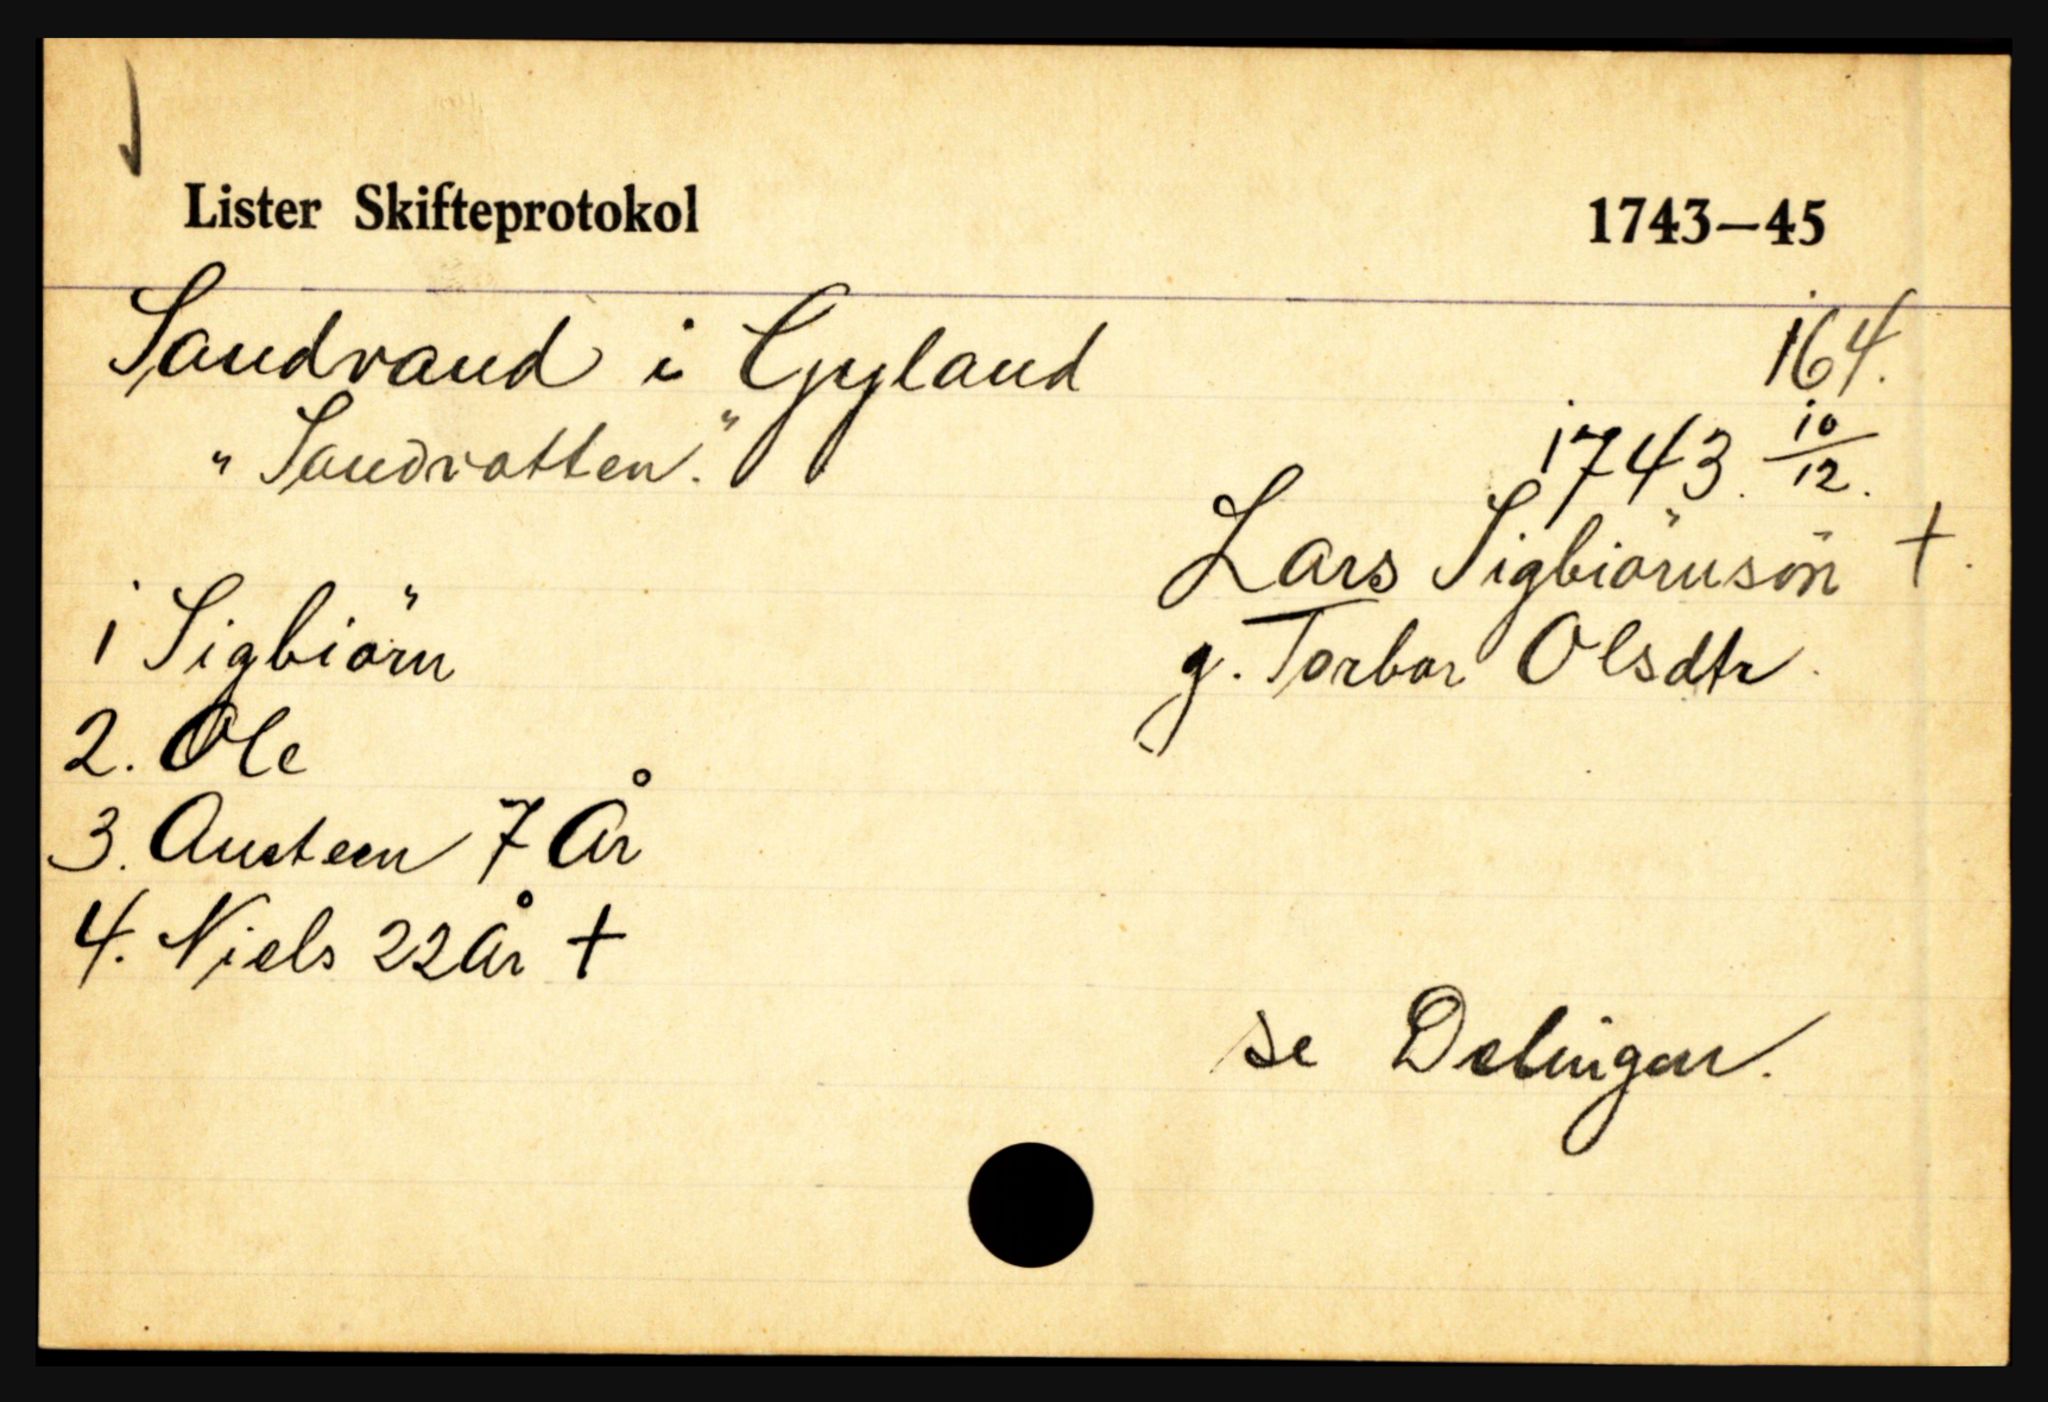 Lister Skifteprotokol 1743–45
Sandvand i Gyland 164.
"Sandvatten." 1743. 10/12.
Lars Sigbiörnsön +.
1 Sigbiörn
g. Torbor Olsdtr.
2. Ole
3. Austeen 7 År
4. Niels 22 År +
se Delingen.